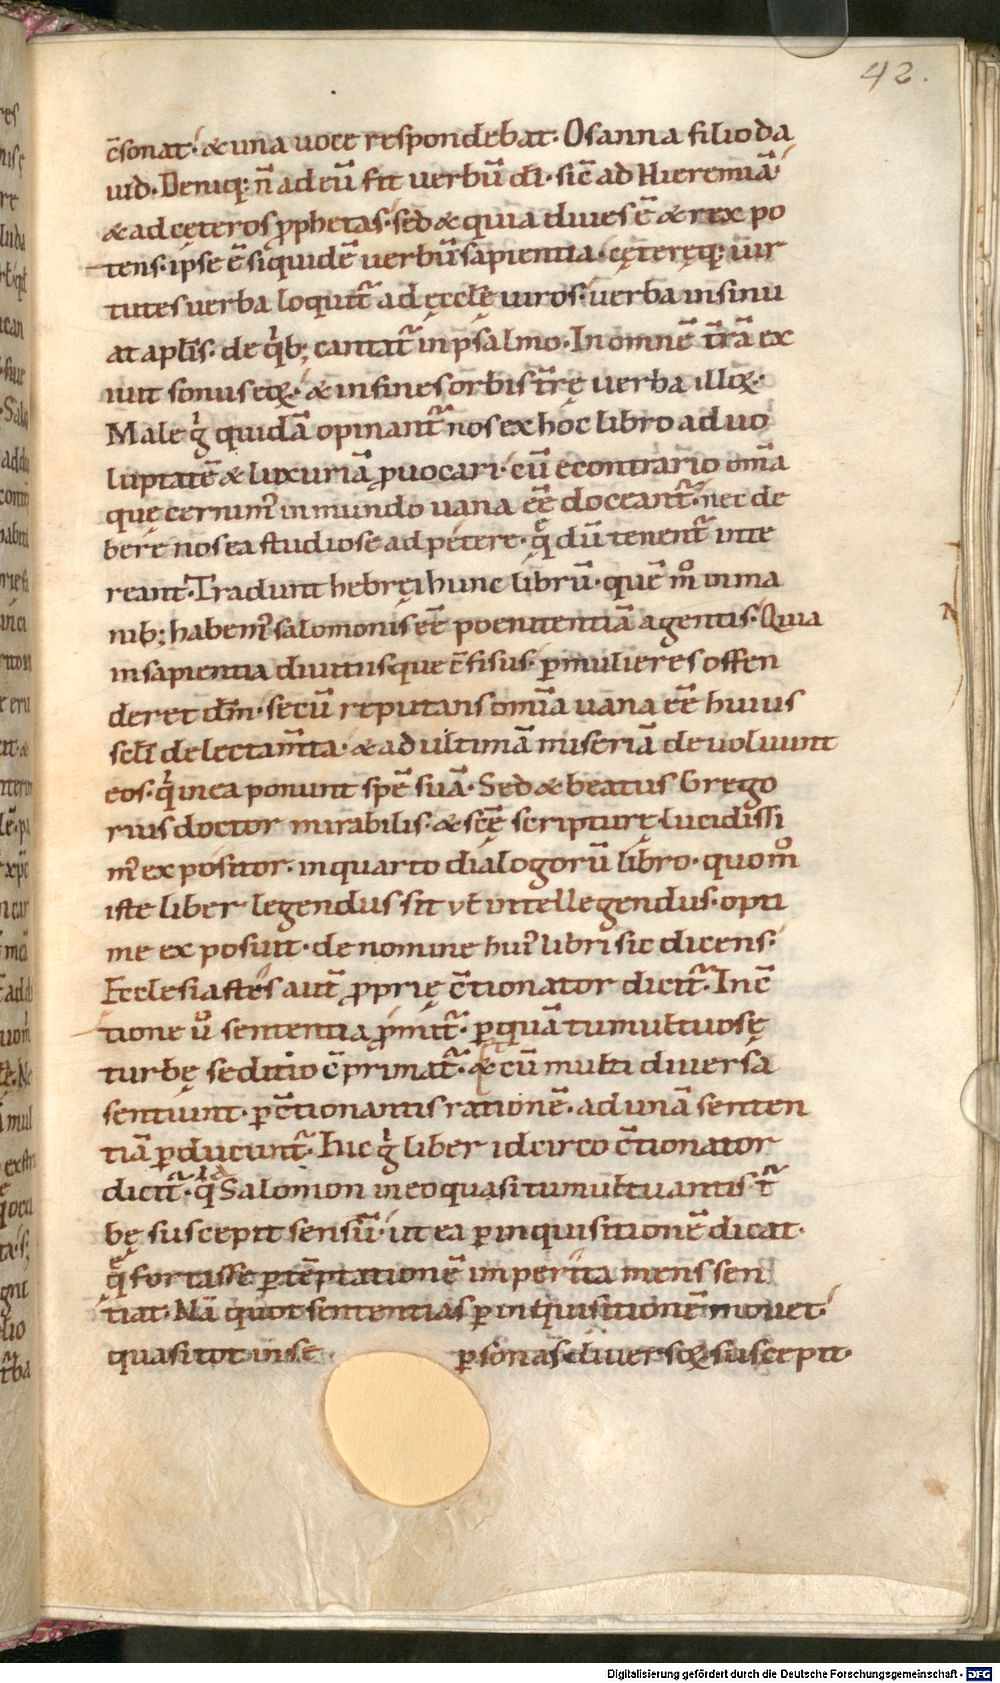 42.
c̄sonat· & una uoce respondebat· Osanna filio da
uid· Deniq; n̄ ad eū fit uerbū dī· sic̄ ad Hieremiā·
& ad ceteros ꝓphetas· sed & quia diues ē & rex po
tens· ipse ē siquidē uerbū sapientia· cęteręq; uir
tutes uerba loquit̄ ad ęccłe uiros· uerba insinu
at apłis· de qⁱb; cantat̄ in psalmo· In omnē t̄rā ex
iuit sonus eoꝝ· & in fines orbis t̄rę uerba illoꝝ·
Male gͥ quidā opinant̄ nos ex hoc libro ad uo
luptatē & luxuriā ꝓuocari· cū econtrario om̄a
quę cernimꝰ in mundo uana eē doceant̄· nec de
bere nos ea studiose adpetere· q̊ dū tenent̄ inte
reant· Tradunt hebręi hunc librū· quē m̊ in ma
nib; habemꝰ salomonis eē poenitentiā agentis· Quia
in sapientia diuitiisque c̄fisus· ꝑ mulieres offen
deret dm̄· secū reputans om̄ia uana eē huius
sełi delectam̄ta· & ad ultimā miseriā deuoluunt
eos· qⁱ in ea ponunt spē suā· Sed & beatus Grego
rius doctor mirabilis· & scē scripturę lucidissi
mꝰ expositor· in quarto dialogorū libro· quom̊
iste liber legendus sit vł intellegendus· opti
me exposuit· de nomine huiꝰ libri sic dicens·
Ecclesiastes aut̄ ꝓprię c̄tionator dicit̄· In c̄
tione ů sententia ꝓmit̄· ꝑ quā tumultuosę
turbę seditio c̄primat̄· & cū multi diuersa
sentiunt· ꝑ c̄tionantis rationē· ad unā senten
tiā ꝑducunt̄· Hic gͥ liber idcirco c̄tionator
dicit̄· qͥd Salomon in eo quasi tumultuantis t̄
bę suscepit sensū· ut ea ꝑ inquisitionē dicat·
q̊ fortasse ꝑ tēptationē imperita mens sen
tiat· Nā quot sententias ꝑ inquisitionē mouet·
quasi tot in se ꝑsonas diuersoꝝ suscepit·
Digitalisierung gefördert durch die Deutsche Forschungsgemeinschaft - DFG